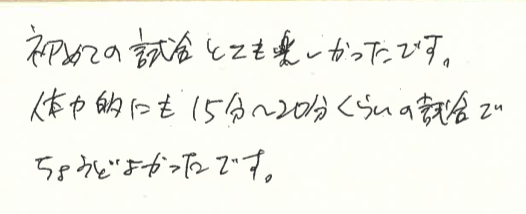 初めての試合とても楽しかったです。
体力的にも15分〜20分くらいの試合で
ちょうどよかったです。